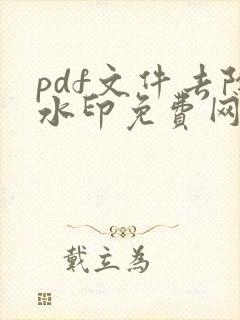 pdf文件去除
水印免费网
戴立为